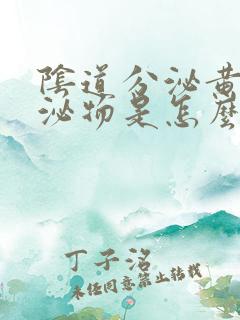 陰道分泌黃
泌物是怎麼
丁子洺
未經同意禁止轉載